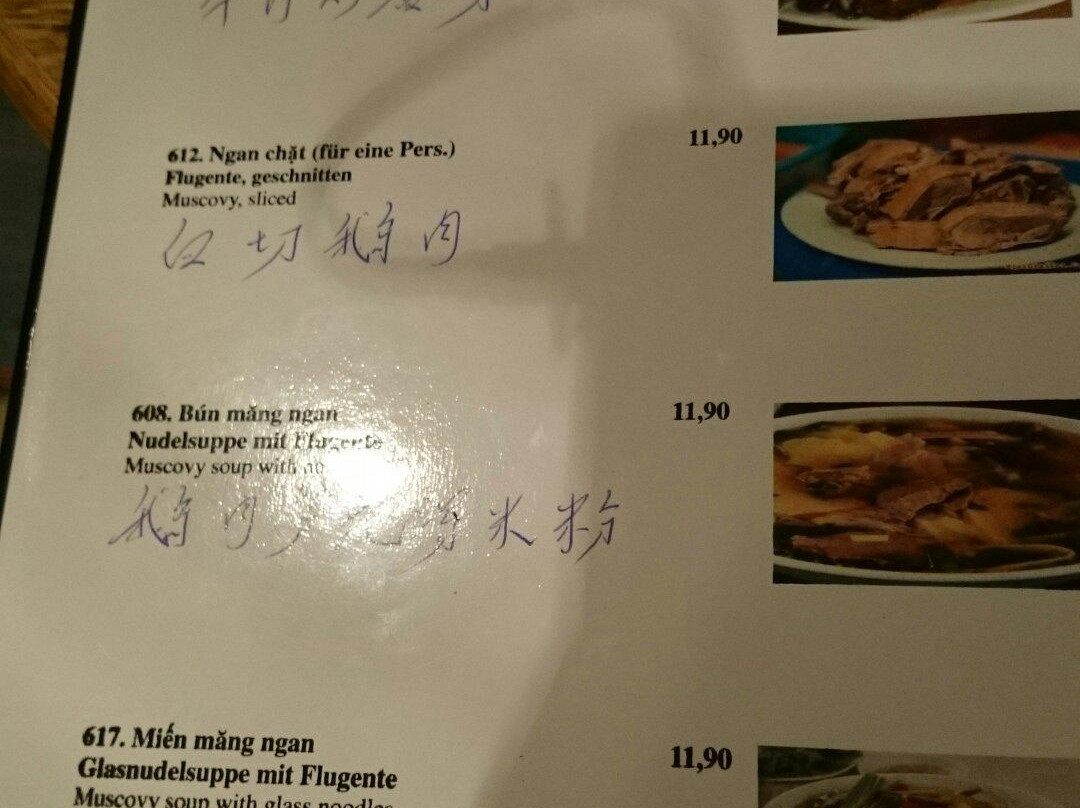 612. Ngan chặt (für eine Pers.)
11,90
Flugente, geschnitten
Muscovy, sliced
白切鹅肉
608. Bún măng ngan
11,90
Nudelsuppe mit Flugente
Muscovy soup with no
鹅肉 米粉
617. Miến măng ngan
11,90
Glasnudelsuppe mit Flugente
Muscovy soup with glass noodles